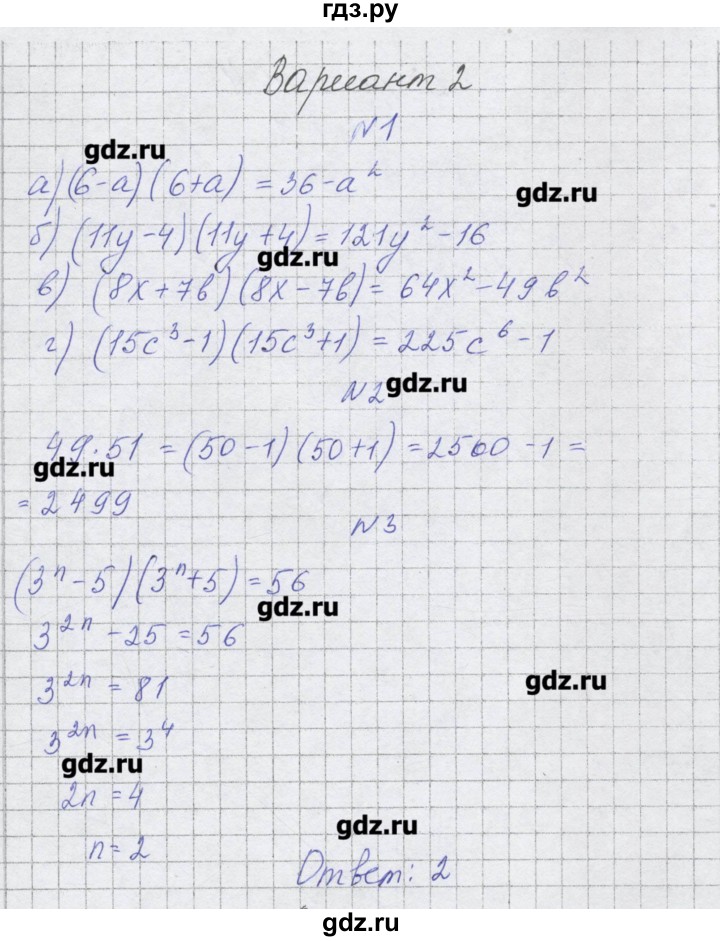 гдз.ру
Вариант 2
№1
gdz.ru
а) (6-а) (6+а) = 36-а²
gdz.ru
б) (11y-4) (11y+4) = 121y² - 16
gdz.ru
в) (8x+7в) (8x-7в) = 64x² - 49в²
г) (15c³-1) (15c³+1) = 225c⁶ - 1
№2
gdz.ru
49·51 = (50-1) (50+1) = 2500 - 1 =
gdz.ru
= 2499
№3
(3ⁿ-5) (3ⁿ+5) = 56
gdz.ru
3²ⁿ - 25 = 56
gdz.ru
3²ⁿ = 81
3²ⁿ = 3⁴
gdz.ru
2n = 4
gdz.ru
n = 2
Ответ: 2
gdz.ru